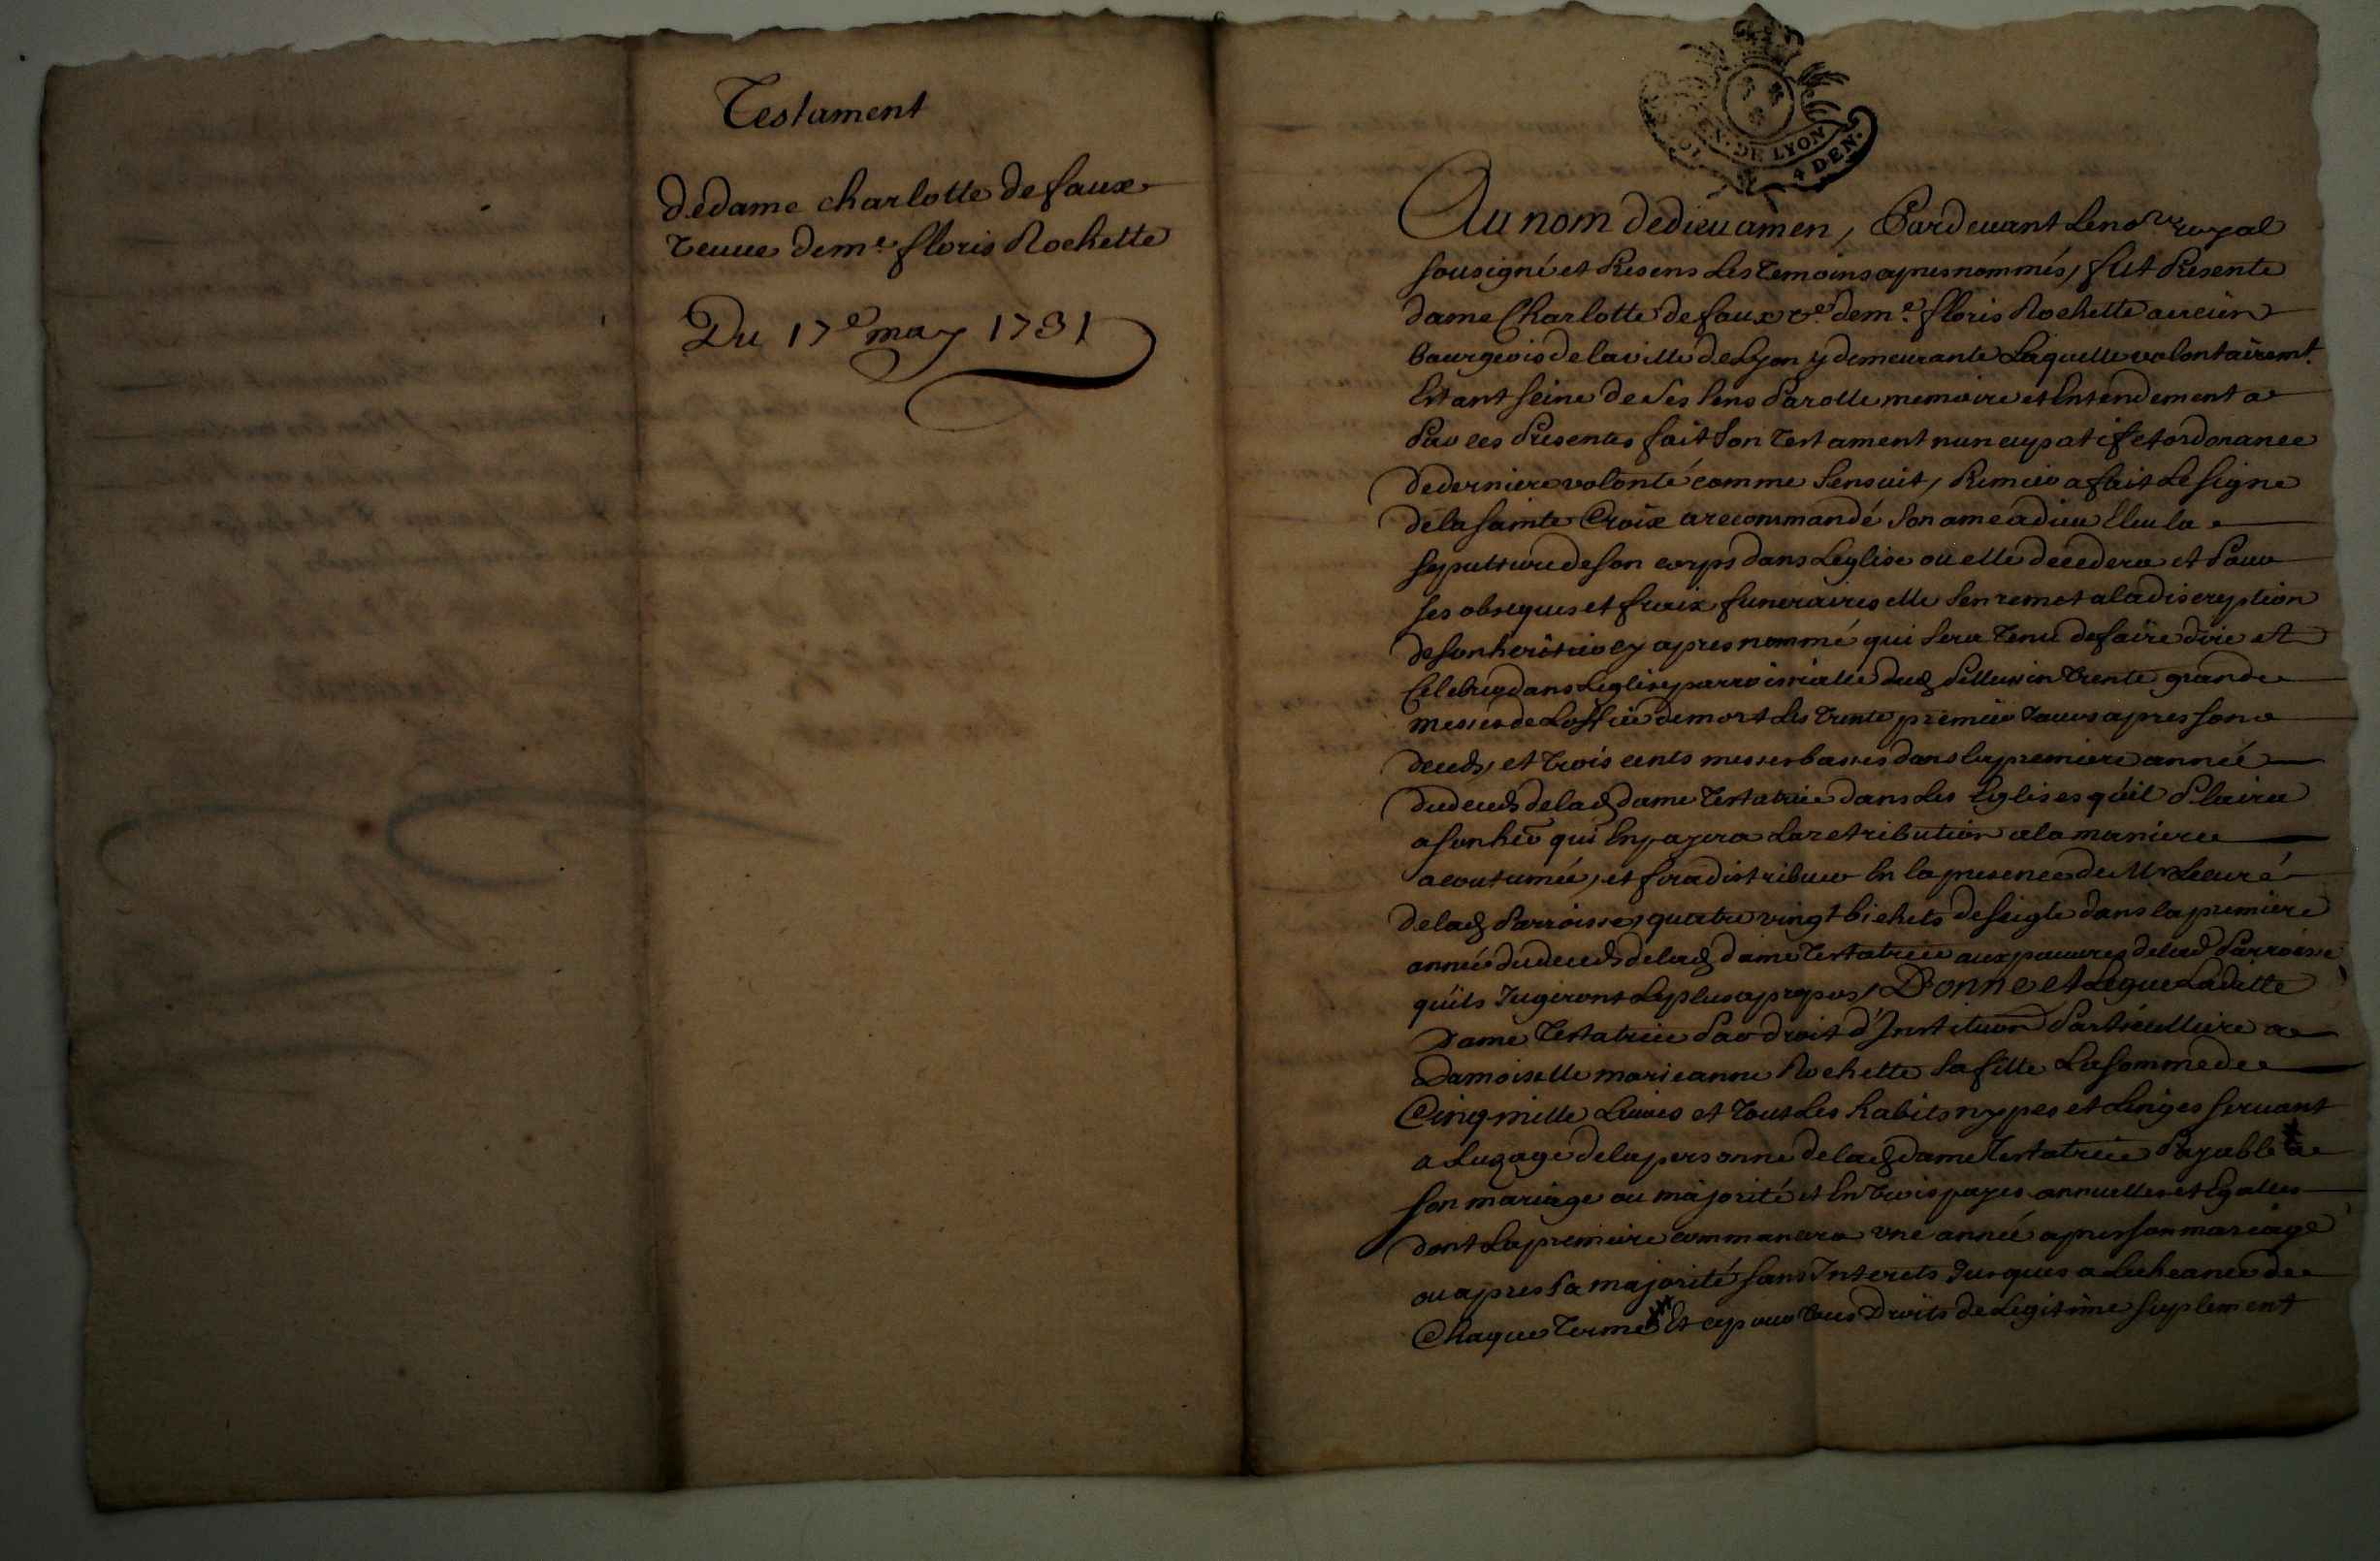 Testament
de dame charlotte de faux
veuve de me floris Rochette
Du 17e may 1731
GEN. DE LYON
4 DEN.
Au nom de dieu amen, Pardevant le nore royal
sousigné et Presens les temoins apres nommés, fut Presente
dame Charlotte de faux ve de me floris Rochette
bourgeois de la ville de Lyon y demeurante Laquelle volontairemt
Estant seine de ses sens Parolle memoire et Entendement a
Par ces Presentes fait son testament nuncupatif et ordonance
de derniere volonté comme sensuit, Premier a fait Le signe
de la sainte Croix a recommandé son ame a dieu Eleu la
sepulture de son corps dans Leglise ou elle decedera et Pour
ses obseques et fraix funeraires elle sen remet a la discreption
de son heritier cy apres nommé qui sera tenu de faire dire et
Celebrer dans Leglise parroissialle dud Pellussin trente grande
messes de Loffice de mort les trente premier Jours apres son
deceds, et trois cents messes basses dans la premiere année
du deceds de lad dame testatrice dans les Eglises quil Plaira
a son her qui En payera La retribution a la maniere
acoutumée, et fera distribuer En la presence de Mr Lecuré
de lad Parroisse, quatre vingt bichets de seigle dans la premiere
année du deceds de lad dame testatrice aux pauvres de lad Parroisse
quils Jugeront Le plus a propos, Donne et Legue Laditte
Dame testatrice Par droit d'Institution Particulliere a
Damoiselle marieanne Rochette sa fille La somme de
Cinq mille Livres et tout les habits nypes et Linges servant
a Luzage de la personne de lad dame testatrice Payable a
son mariage ou majorité et En trois payes annuelles et Egalles
dont La premiere commancera une année apres son mariage
ou apres sa majorité sans Interets Jusques a Lecheance de
Chaque terme Et ce pour tous Droits de Legitime suplement